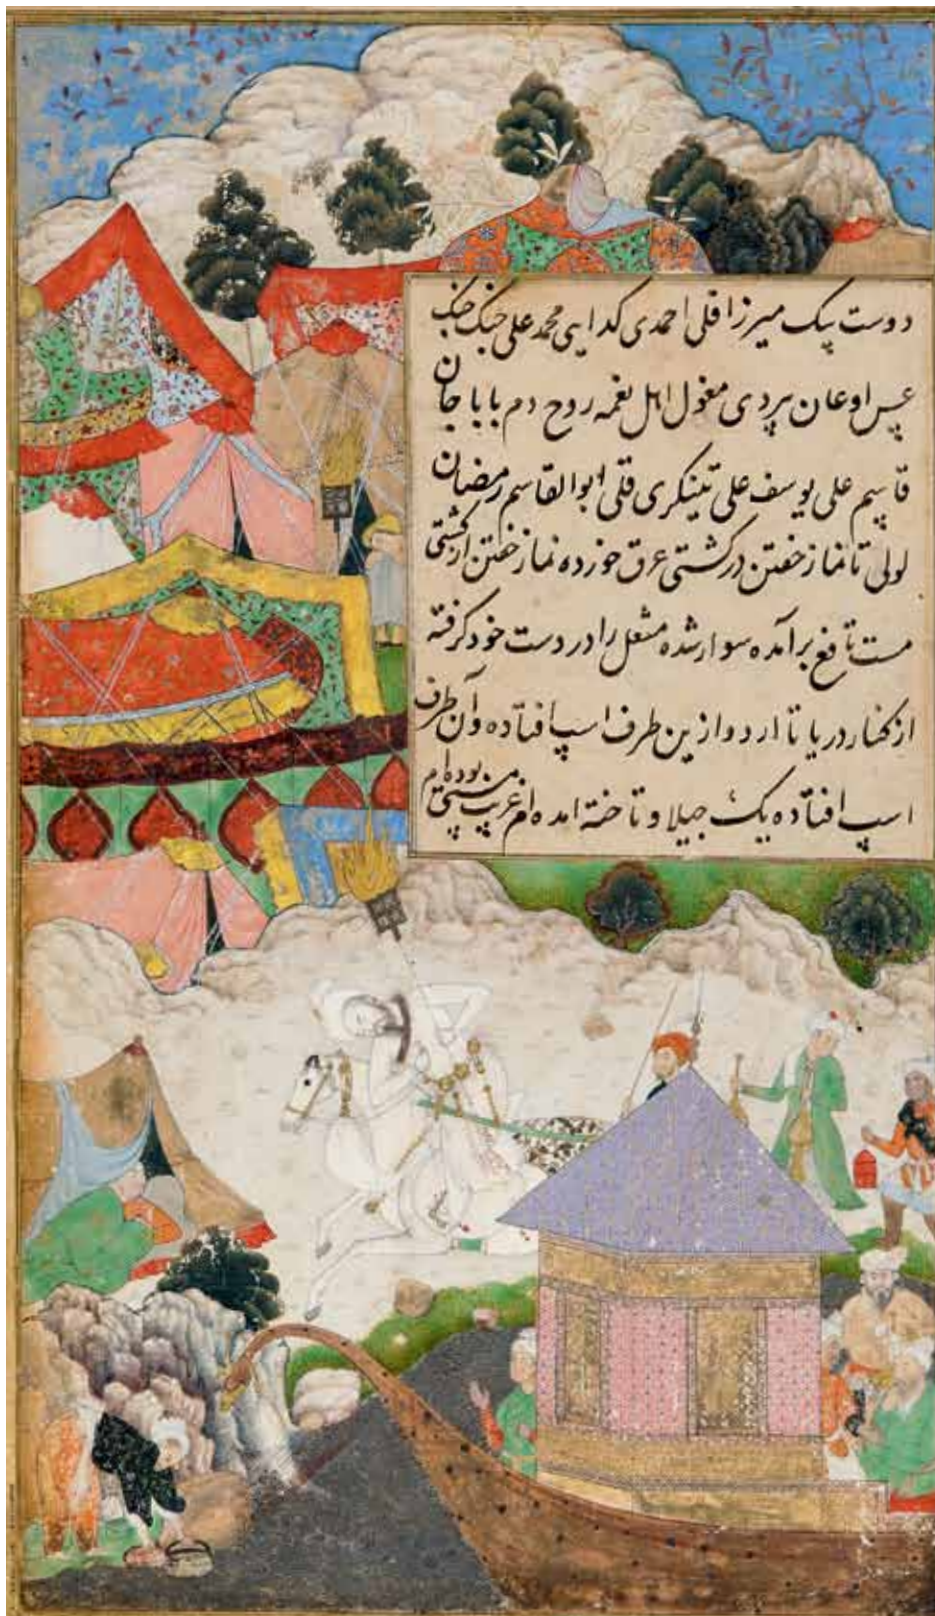 دوست بیک میرزا قلی احمدی کدایی محمد علی جنک جنک
عسس اوغان بردی مغول اهل نغمه روح دم بابا جان
قاسم علی یوسف علی تینکری قلی ابوالقاسم رمضان
لولی تا نماز خفتن در کشتی عرق خورده نماز خفتن از کشتی
مست تا فع برآمده سوار شده مشعل را در دست خود کرفته
از کنار دریا تا اردو ازین طرف اسپ افتاده و آن طرف
اسپ افتاده یک جیلا و تاخته امده ام غریب مستی بوده ام